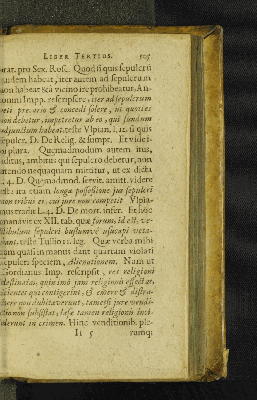 LIBER TERTIUS. 505
orat. pro Sex. Rosc. Quod si quis sepulcrū
quidem habeat, iter autem ad sepulcrum
non habeat & à vicino ire prohibeatur, An-
tonini Impp. rescripsere, iter ad sepulcrum
peti precario & concedi solere, ut quoties
non debetur, impetretur ab eo, qui fundum
adjunctum habeat. teste Ulpian. l. 12. si quis
sepulcr. D. De Relig. & sumpt. Et videri
plura. Quemadmodum autem ius,
aditus, ambitus qui sepulcro debetur, non
utendo nequaquam mittitur, ut ex dicta
l. 4. D. Quemadmod. servit. amitt. videre
est: ita etiam longa possessione jus sepulcri
non tribui ei, cui jure non competit Ulpia-
nus tradit L. 4. D. De mort. infer. Et hoc
manavit ex XII. tab. quæ forum, id est, ve-
stibulum sepulcri bustumve usucapi veta-
bant. teste Tullio 11. leg. Quæ verba mihi
cum quasi in manus dant quartam violati
sepulcri speciem, Alienationem. Nam ut
Gordianus Imp. rescripsit, res religioni
destinatas, quinimò jam religionis effectas,
scientes qui contigerint, & emere & distra-
here non dubitaverunt, tametsi jure vendi-
tio non subsistat, læsæ tamen religionis inci-
derunt in crimen. Hinc venditionib. ple-
Ii 5 rumq;